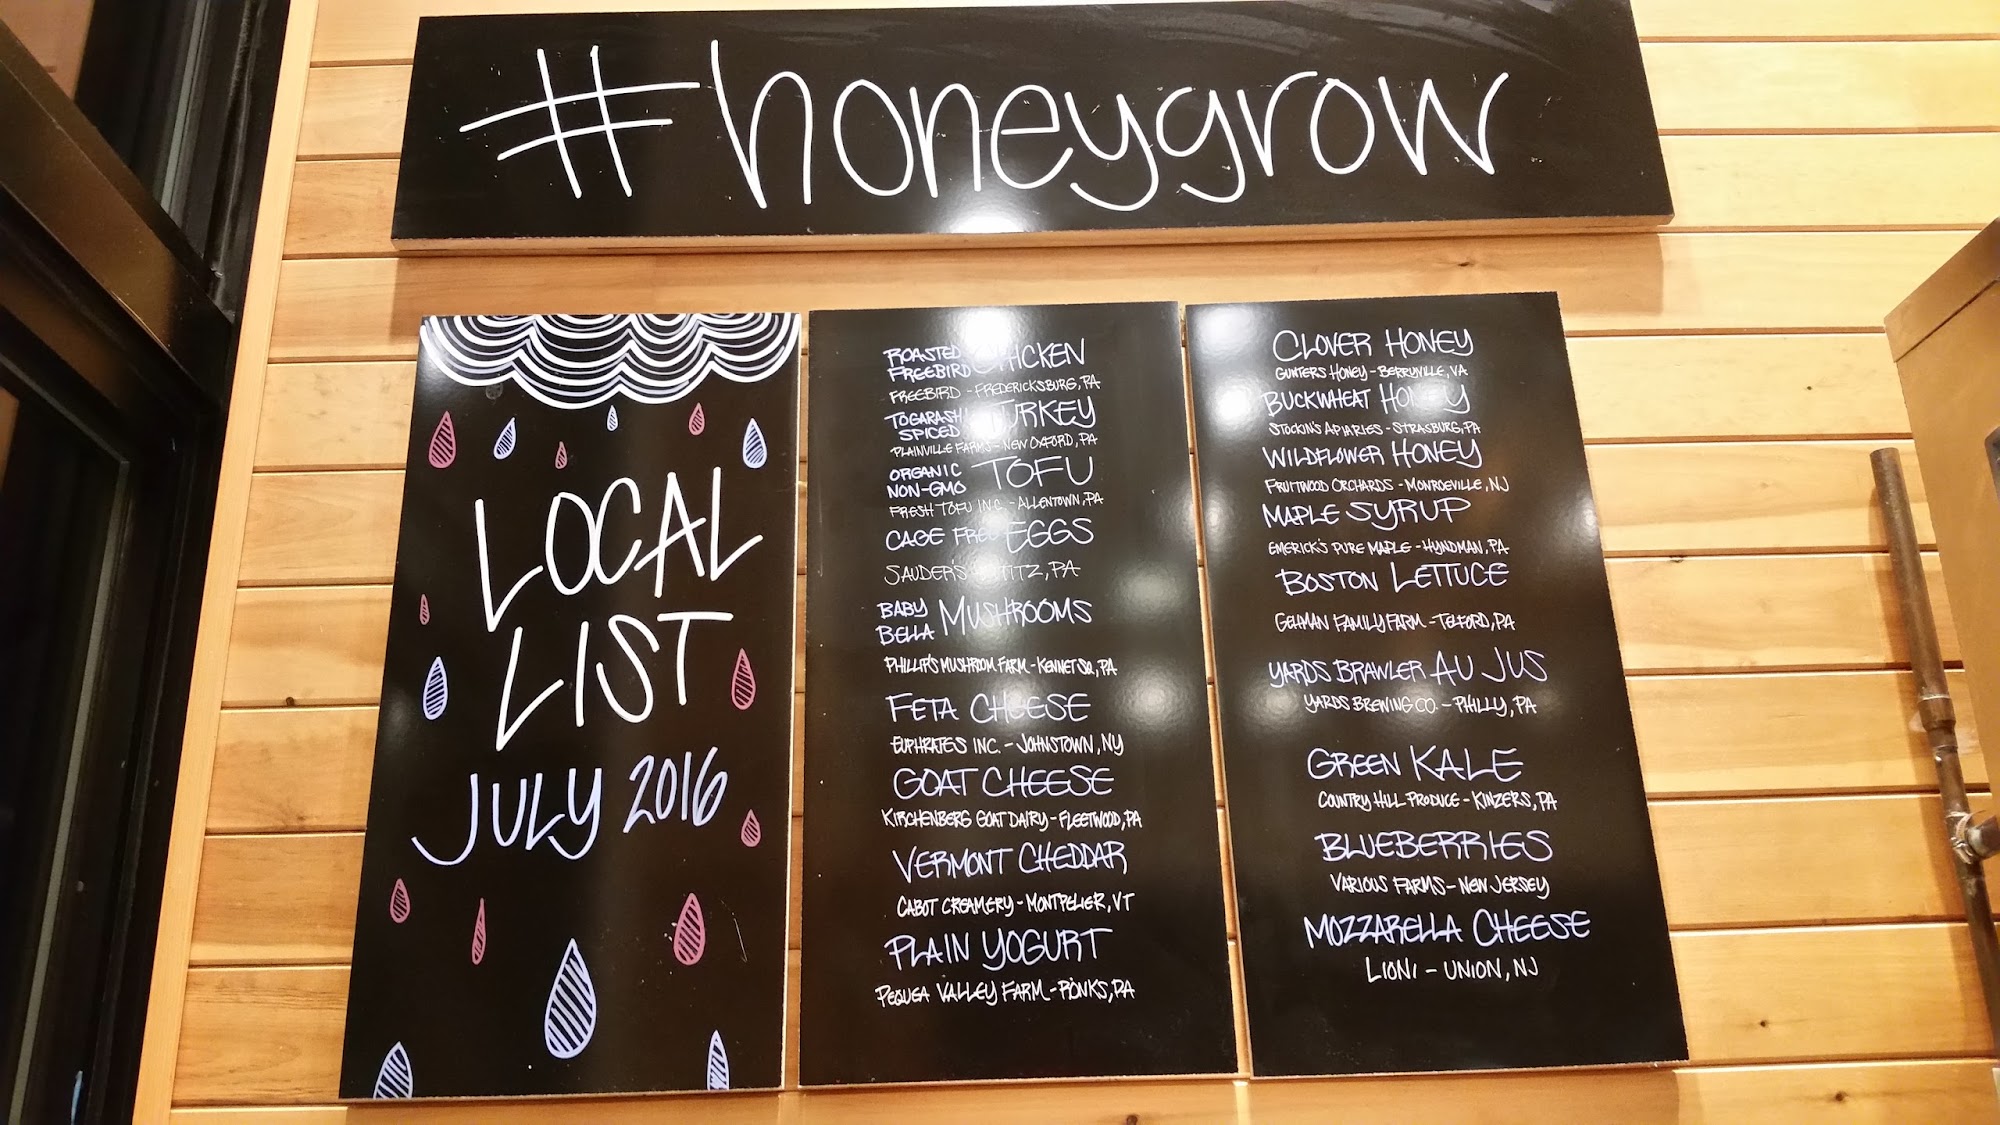 #honeygrow
LOCAL
LIST
JULY 2016
ROASTED FREEBIRD CHICKEN
FREEBIRD - FREDERICKSBURG, PA
TOGARASHI SPICED TURKEY
PLAINVILLE FARMS - NEW OXFORD, PA
ORGANIC NON-GMO TOFU
FRESH TOFU INC. - ALLENTOWN, PA
CAGE FREE EGGS
SAUDER'S - LITITZ, PA
BABY BELLA MUSHROOMS
PHILLIP'S MUSHROOM FARM - KENNET SQ, PA
FETA CHEESE
EUPHRATES INC. - JOHNSTOWN, NY
GOAT CHEESE
KIRCHENBERG GOAT DAIRY - FLEETWOOD, PA
VERMONT CHEDDAR
CABOT CREAMERY - MONTPELIER, VT
PLAIN YOGURT
PEQUEA VALLEY FARM - RONKS, PA
CLOVER HONEY
GUNTERS HONEY - BERRYVILLE, VA
BUCKWHEAT HONEY
STOCKIN'S APIARIES - STRASBURG, PA
WILDFLOWER HONEY
FRUITWOOD ORCHARDS - MONROEVILLE, NJ
MAPLE SYRUP
EMERICK'S PURE MAPLE - HYNDMAN, PA
BOSTON LETTUCE
GEHMAN FAMILY FARM - TELFORD, PA
YARDS BRAWLER AU JUS
YARDS BREWING CO. - PHILLY, PA
GREEN KALE
COUNTRY HILL PRODUCE - KINZERS, PA
BLUEBERRIES
VARIOUS FARMS - NEW JERSEY
MOZZARELLA CHEESE
LIONI - UNION, NJ